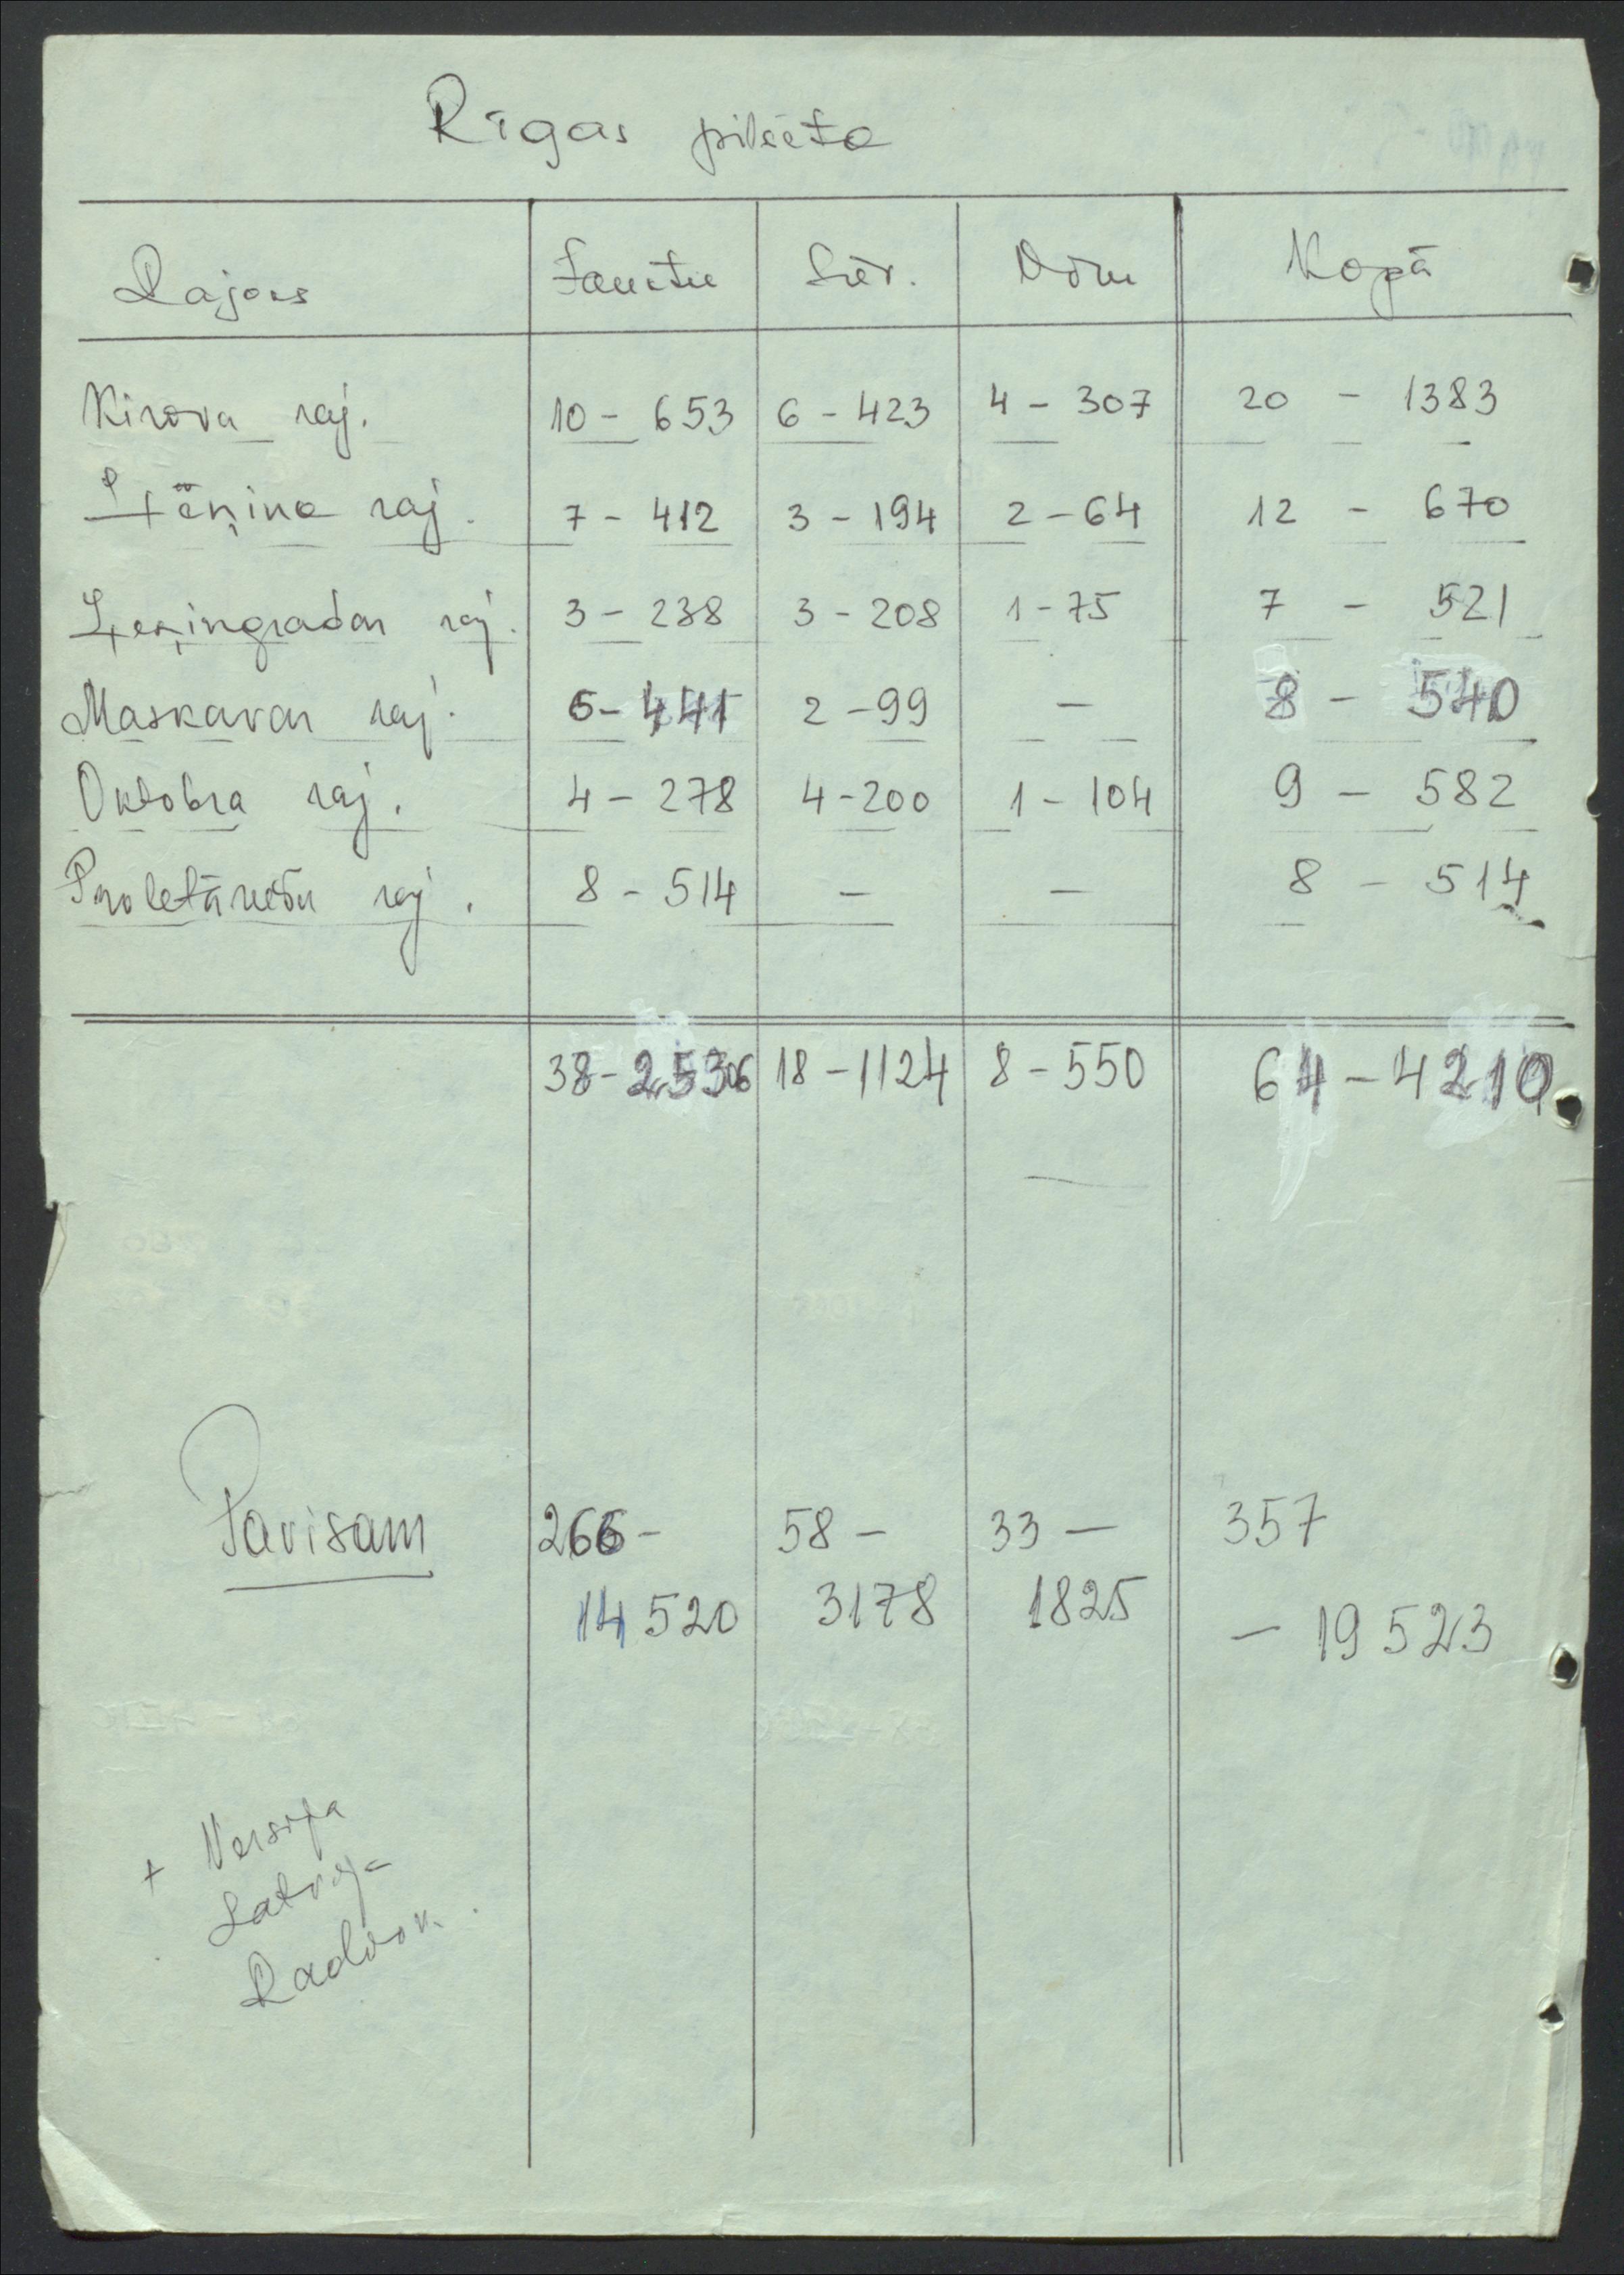 Rīgas pilsēta
Rajons Jauktie Siev. Vīru Kopā
Kirova raj. 10 - 653 6 - 423 4 - 307 20 - 1383
Ļeņina raj. 7 - 412 3 - 194 2 - 64 12 - 670
Ļeņingradas raj. 3 - 238 3 - 208 1 - 75 7 - 521
Maskavas raj. 6 - 441 2 - 99 - 8 - 540
Oktobra raj. 4 - 278 4 - 200 1 - 104 9 - 582
Proletāriešu raj. 8 - 514 - - 8 - 514
38 - 2536 18 - 1124 8 - 550 64 - 4210
Pavisam 266 - 58 - 33 - 357
14 520 3178 1825 - 19 523
+ Versija
Latvija